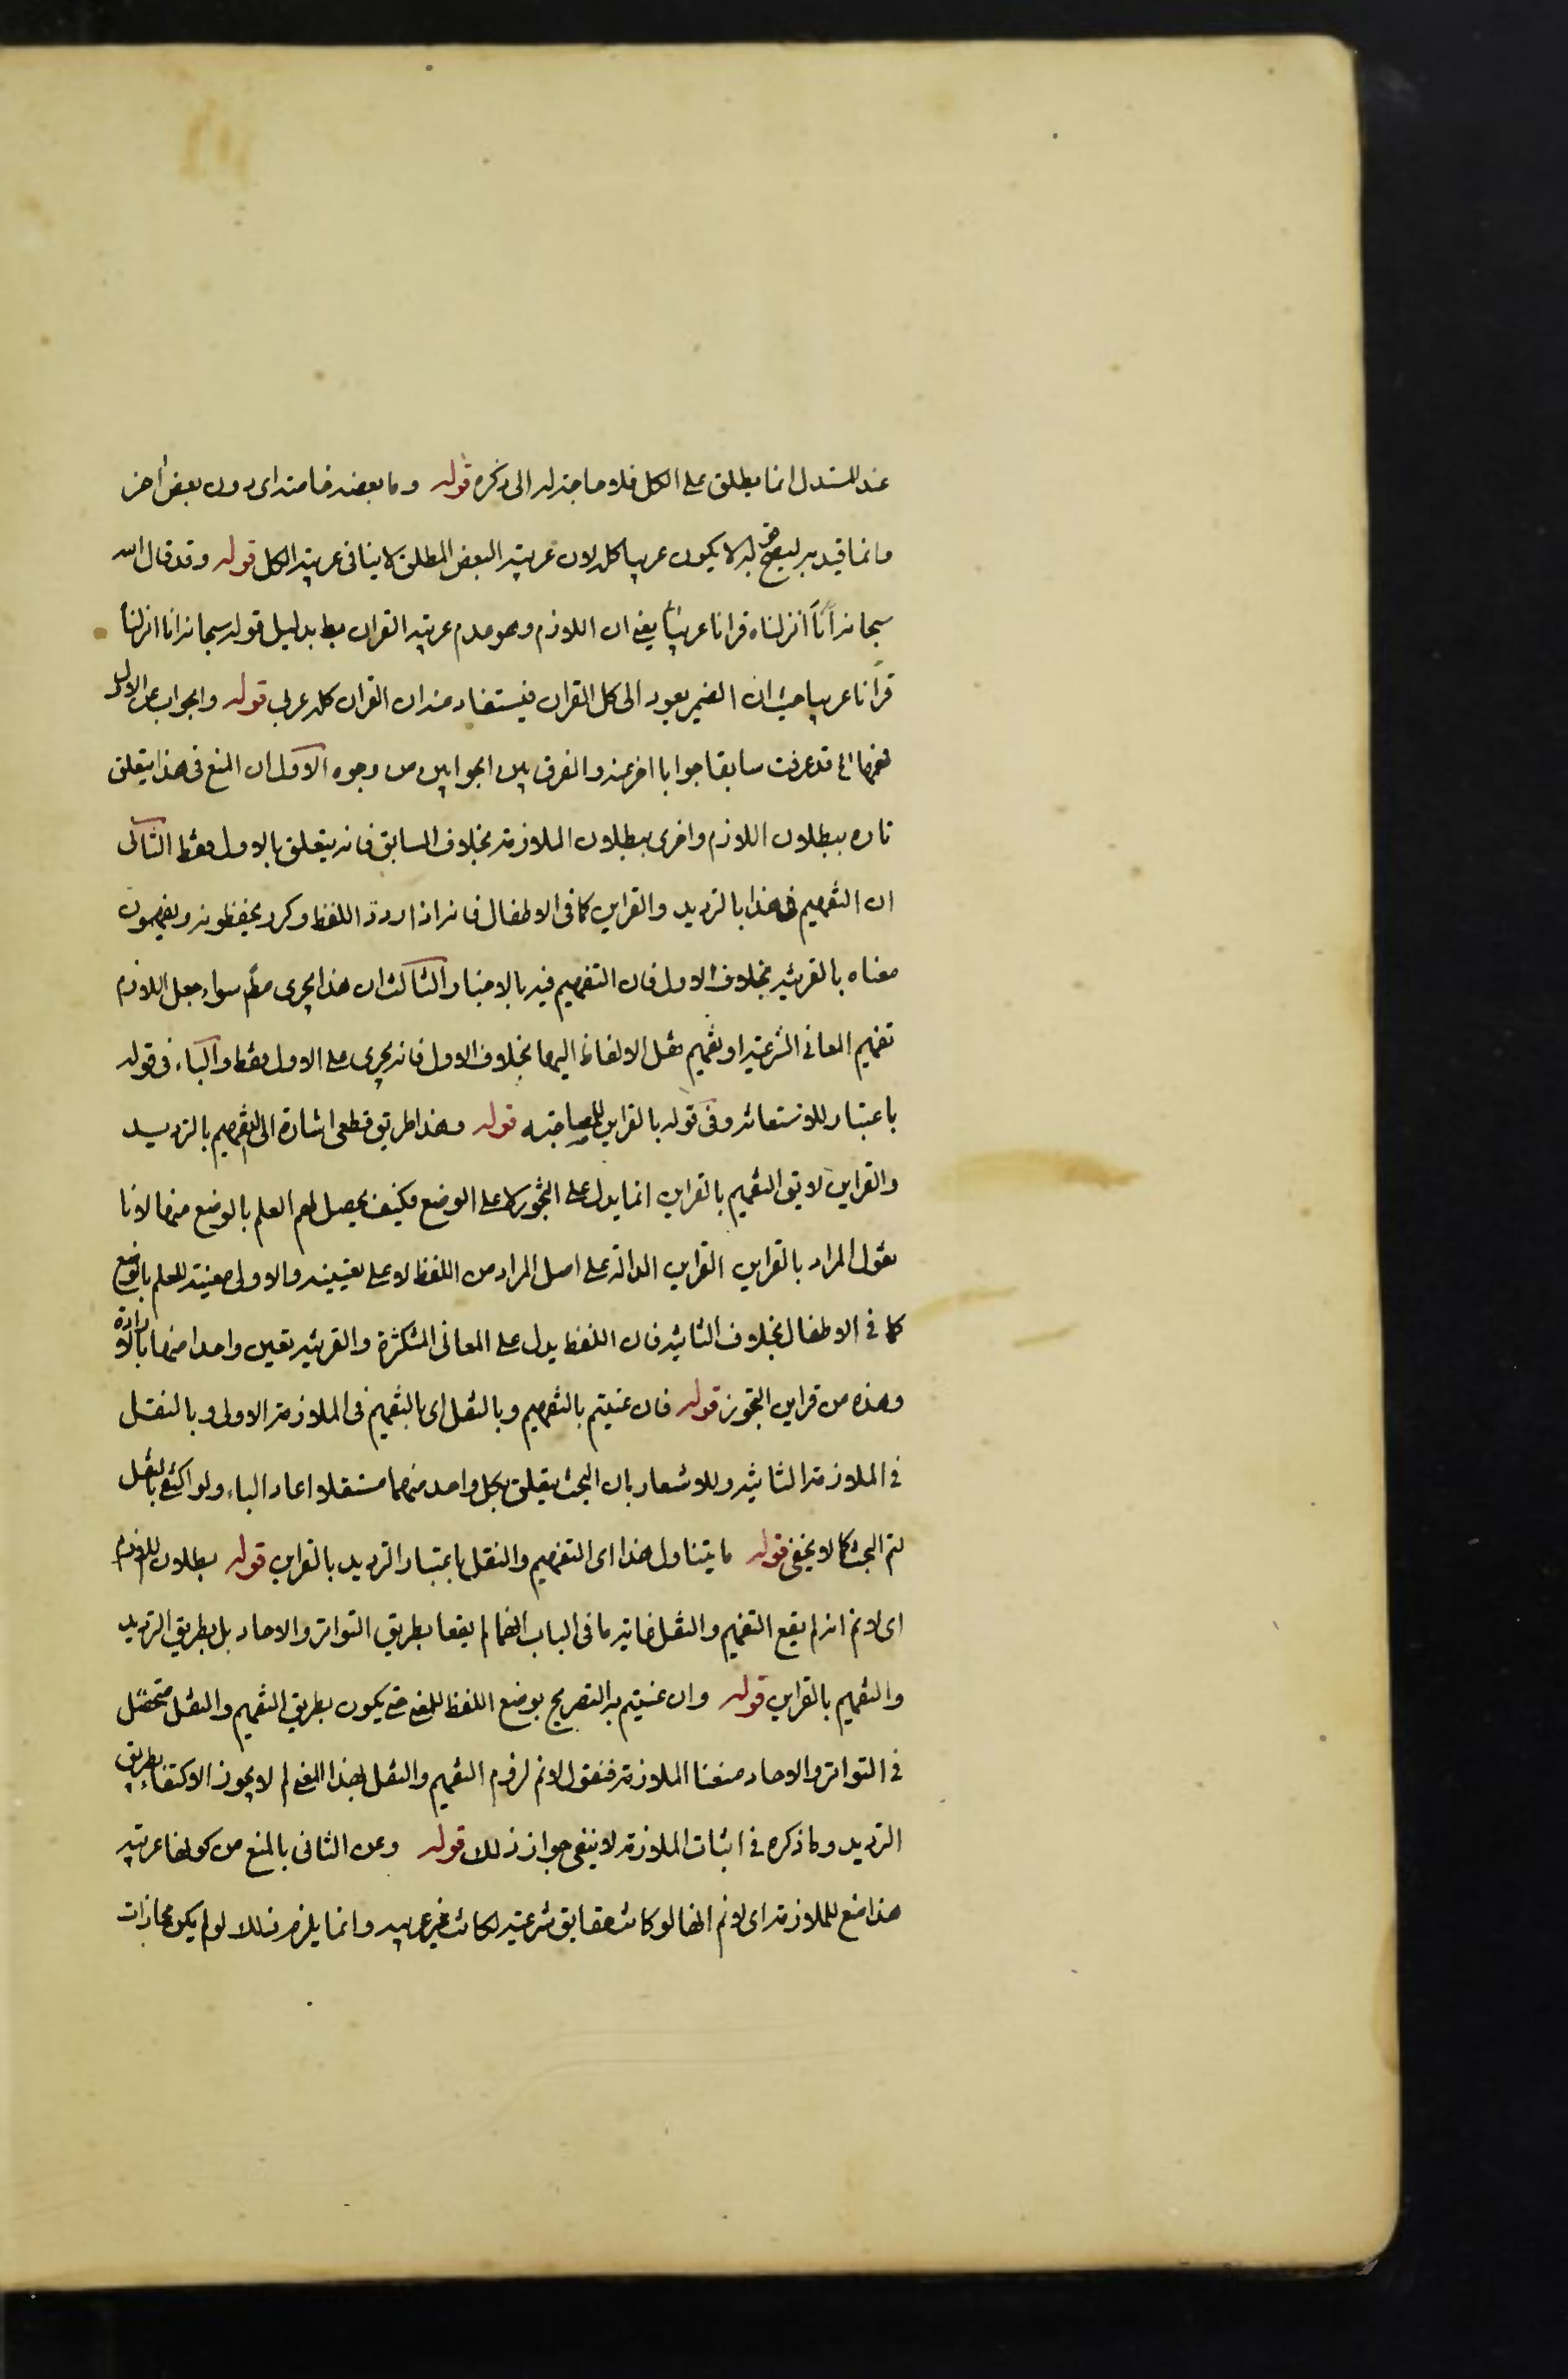 عند المستدل انما يطلق على الكل فلا حاجة له الى ذكره قوله وما بعضه خاصة اى دون بعض اخر
وانما قيد به ليصح قوله لا يكون عربيا كله لان عربية البعض المطلق لا ينافى عربية الكل قوله وقد قال الله
سبحانه انا انزلناه قرانا عربيا يعنى ان اللازم وهو عدم عربية القران بط بدليل قوله سبحانه انا انزلناه
قرانا عربيا حيث ان الضمير يعود الى كل القران فيستفاد منه ان القران كله عربى قوله والجواب عن الاول
فهمها الخ قد عرفت سابقا جوابا اخر عنه والفرق بين الجوابين من وجوه الاول ان المنع فى هذا يتعلق
تارة ببطلان اللازم واخرى ببطلان الملازمة بخلاف السابق فانه يتعلق بالاول فقط الثانى
ان التفهيم فى هذا بالترديد والقراين كما فى الاطفال فانه اذا ردد اللفظ وكرر يحفظونه ويفهمون
معناه بالقرينة بخلاف الاول فان التفهيم فيه بالاخبار الثالث ان هذا يجرى مطم سواء جعل اللازم
تفهيم المعانى الشرعية او تفهيم نقل الالفاظ اليها بخلاف الاول فانه يجرى على الاول فقط والباء فى قوله
باعتبار للاستعانة وفى قوله بالقراين للمصاحبة قوله وهذا طريق قطعى اشارة الى التفهيم بالترديد
والقراين لا يق التفهيم بالقراين انما يدل على التجوز لا على الوضع فكيف يحصل لهم العلم بالوضع منها لانا
نقول المراد بالقراين القراين الدالة على اصل المراد من اللفظ لا على تعيينه والاولى معينة للعلم بالوضع
كما فى الاطفال بخلاف الثانية فان اللفظ يدل على المعانى المتكثرة والقرينة تعين واحدا منها بالارادة
وهذه من قراين التجوز قوله فان عنيتم بالتفهيم وبالنقل اى بالتفهيم فى الملازمة الاولى وبالنقل
فى الملازمة الثانية وللاشعار بان البحث يتعلق بكل واحد منهما مستقلا اعاد الباء ولو اكتفى بالنقل
لتم البحث كما لا يخفى قوله ما يتناول هذا اى التفهيم والنقل باعتبار الترديد بالقراين قوله بطلان اللازم
اى لا نم انه لم يقع التفهيم والنقل غاية ما فى الباب انهما لم يقعا بطريق التواتر والاحاد بل بطريق الترديد
والتفهيم بالقراين قوله وان عنيتم به التصريح بوضع اللفظ للمعنى حتى يكون بطريق التفهيم والنقل منحصل
فى التواتر والاحاد منعنا الملازمة فنقول لا نم لزوم التفهيم والنقل بهذا المعنى لم لا يجوز الاكتفاء بطريق
الترديد وما ذكره فى اثبات الملازمة لا ينفى جواز ذلك قوله وعن الثانى بالمنع من كونها عربية
هذا منع للملازمة اى لا نم انها لو كانت حقايق شرعية لكانت غير عربية وانما يلزم ذلك لو لم يكن مجازات